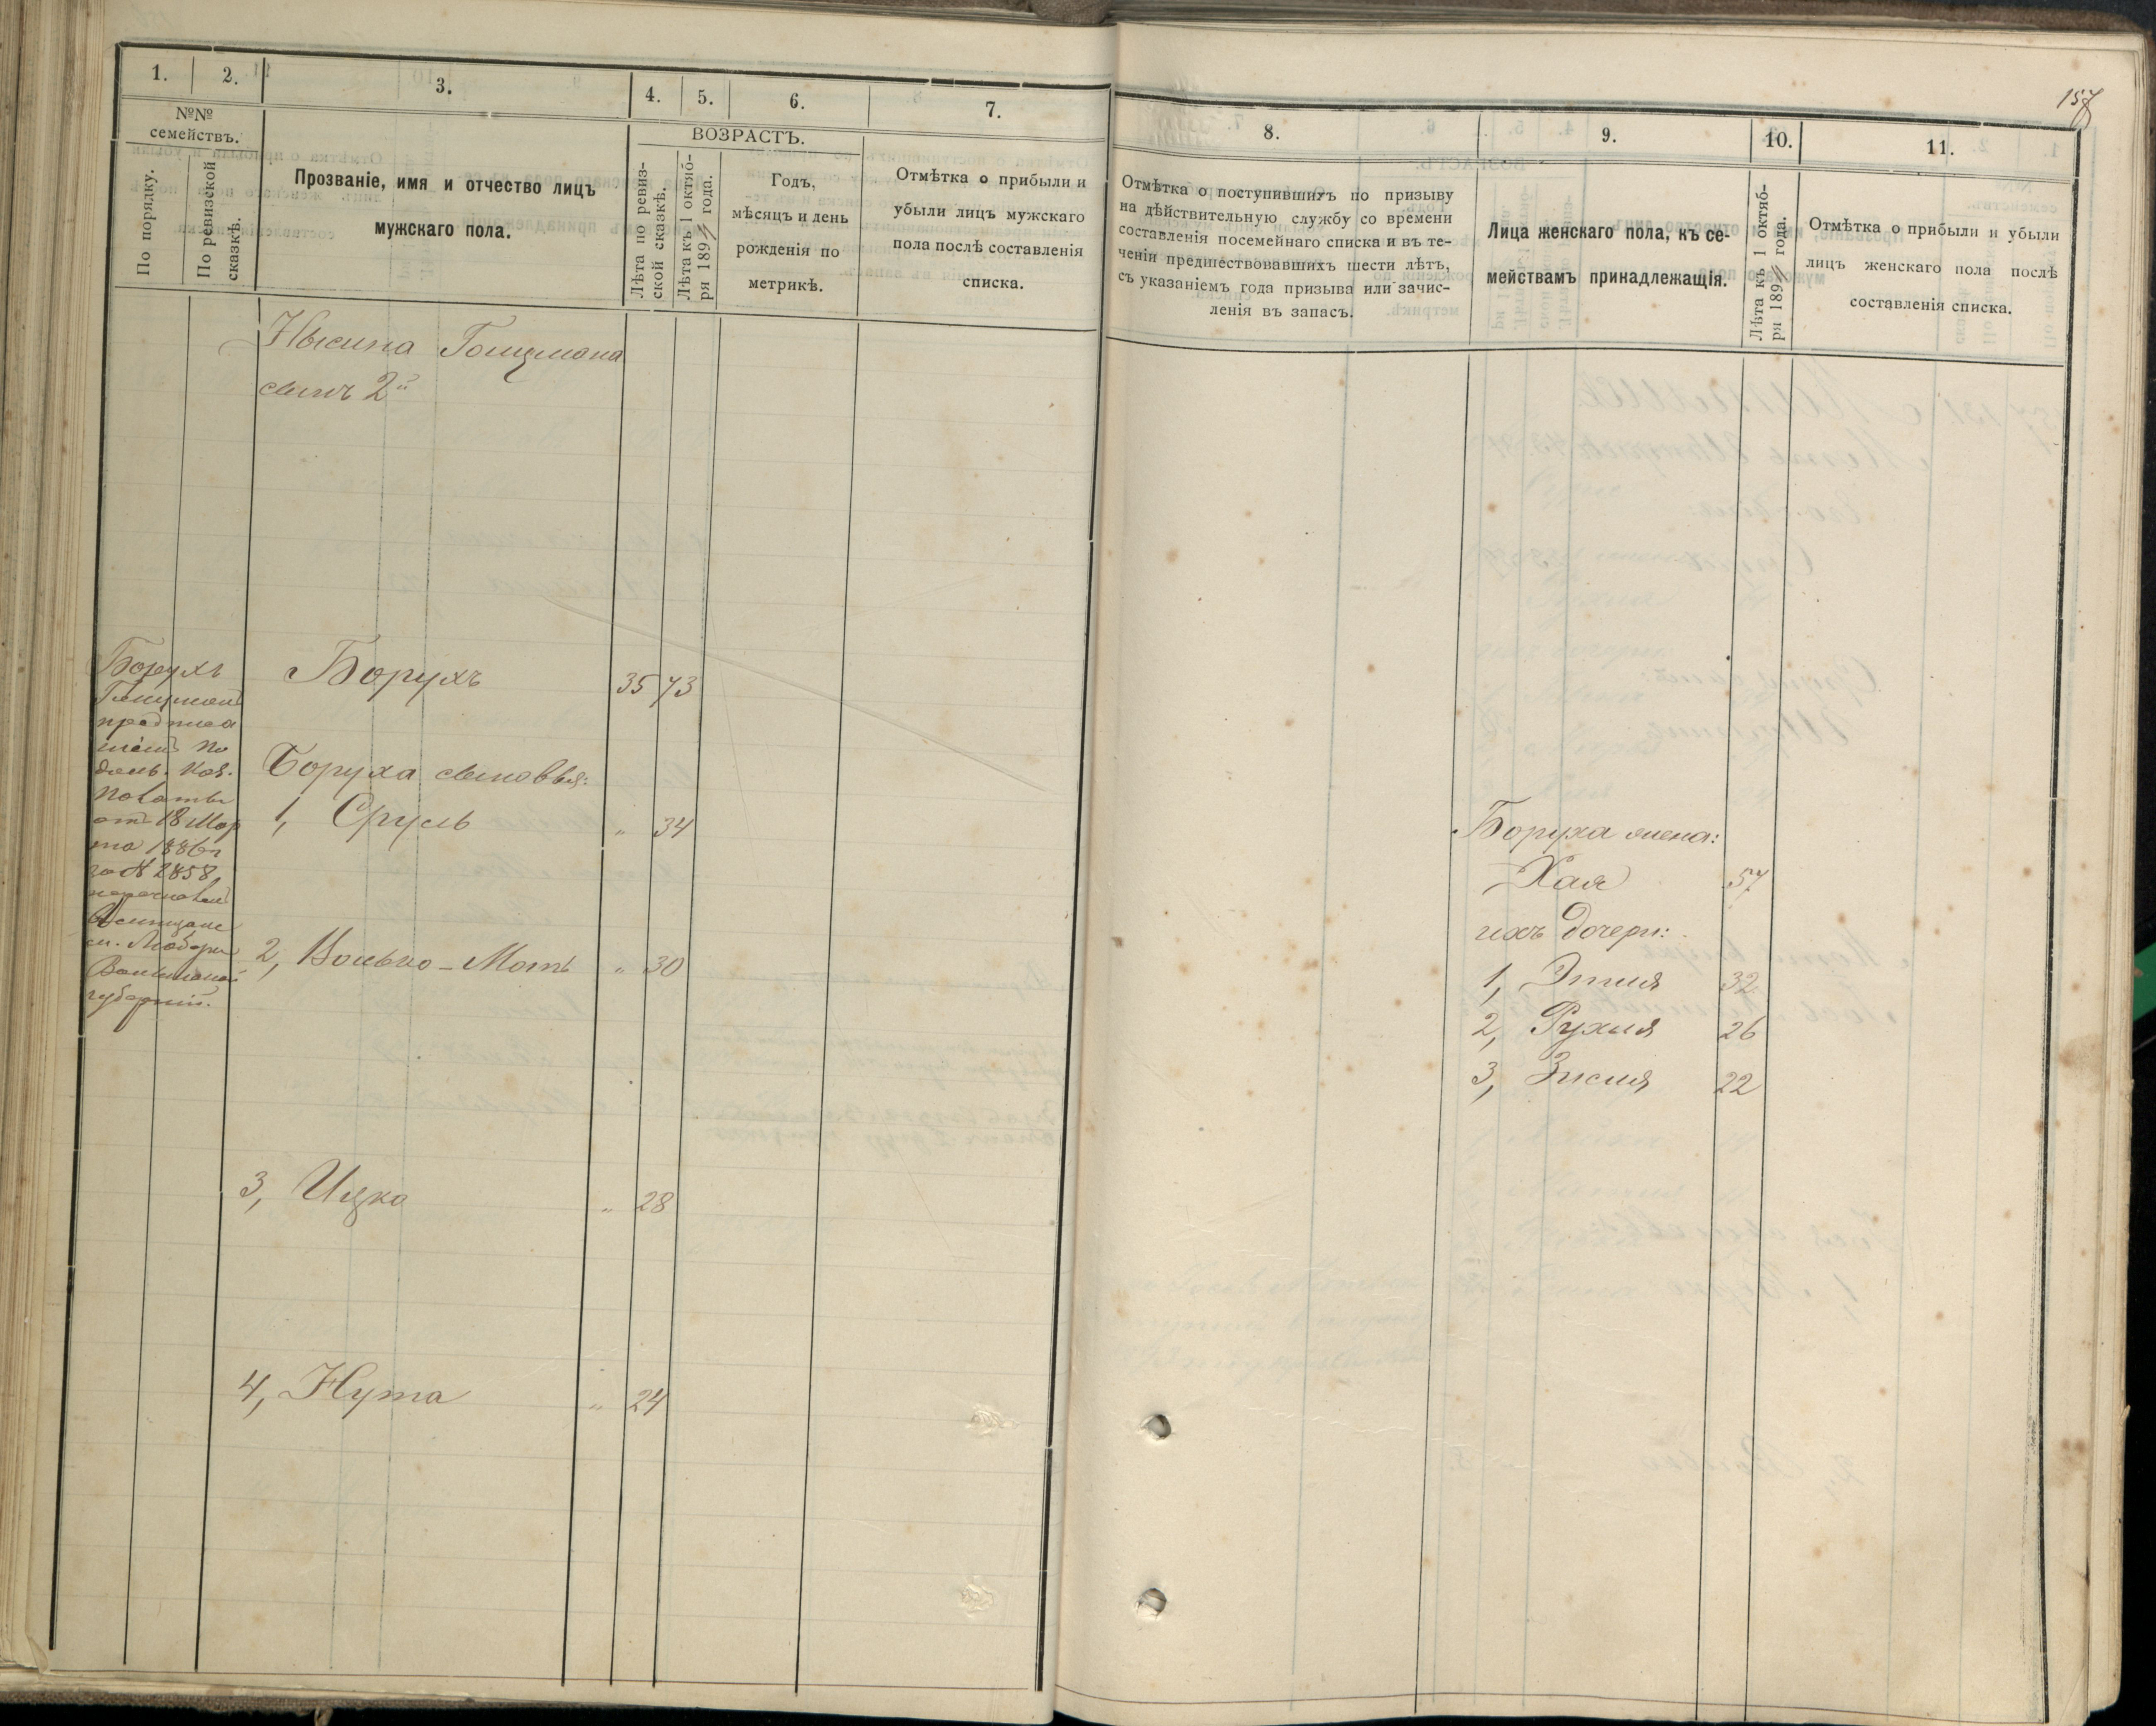 1.
2.
3.
4.
5.
6.
7.
№№
семействъ.
По порядку.
По ревизской
сказкѣ.
Прозваніе, имя и отчество лицъ
мужскаго пола.
ВОЗРАСТЪ.
Лѣта по ревиз-
ской сказкѣ.
Лѣта къ 1 октяб-
ря 189 года.
Годъ,
мѣсяцъ и день
рожденія по
метрикѣ.
Отмѣтка о прибыли и
убыли лицъ мужскаго
пола послѣ составленія
списка.
Нысина
сынъ 2й
Борухъ
предписа
ніемъ По
дольс. Каз.
Палаты
отъ 18 Мар
та 1886 г
за № 2858
м. Любара
Волынской
губерніи.
Борухъ 35 73
Боруха сыновья:
1, Сруль " 34
2, Волько-Мотъ " 30
3, Ицко " 28
4, Нута " 24
157
8.
9.
10.
11.
Отмѣтка о поступившихъ по призыву
на дѣйствительную службу со времени
составленія посемейнаго списка и въ те-
ченіи предшествовавшихъ шести лѣтъ,
съ указаніемъ года призыва или зачис-
ленія въ запасъ.
Лица женскаго пола, къ се-
мействамъ принадлежащія.
Лѣта къ 1 октяб-
ря 189 года.
Отмѣтка о прибыли и убыли
лицъ женскаго пола послѣ
составленія списка.
Боруха жена:
Хая 57
ихъ дочери:
1, Этля 32
2, Рухля 26
3, Зисля 22